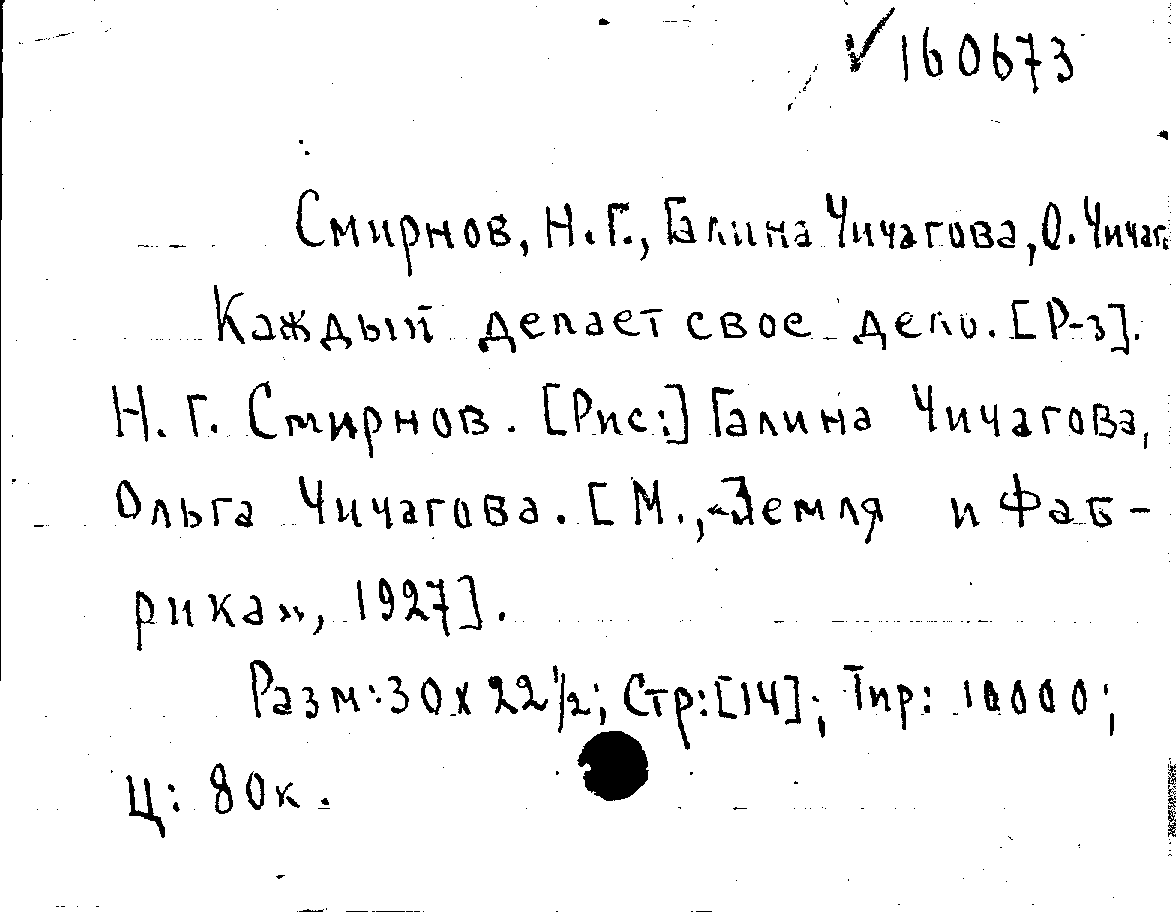 ✓160673
Смирнов, Н.Г., Галина Чичагова, О. Чичаг.
Каждый делает свое дело. [Р-з].
Н. Г. Смирнов. [Рис:] Галина Чичагова,
Ольга Чичагова. [М., «Земля и Фаб-
рика», 1927].
Разм: 30 х 22 1/2; Стр: [14]; Тир: 10000;
Ц: 80к.